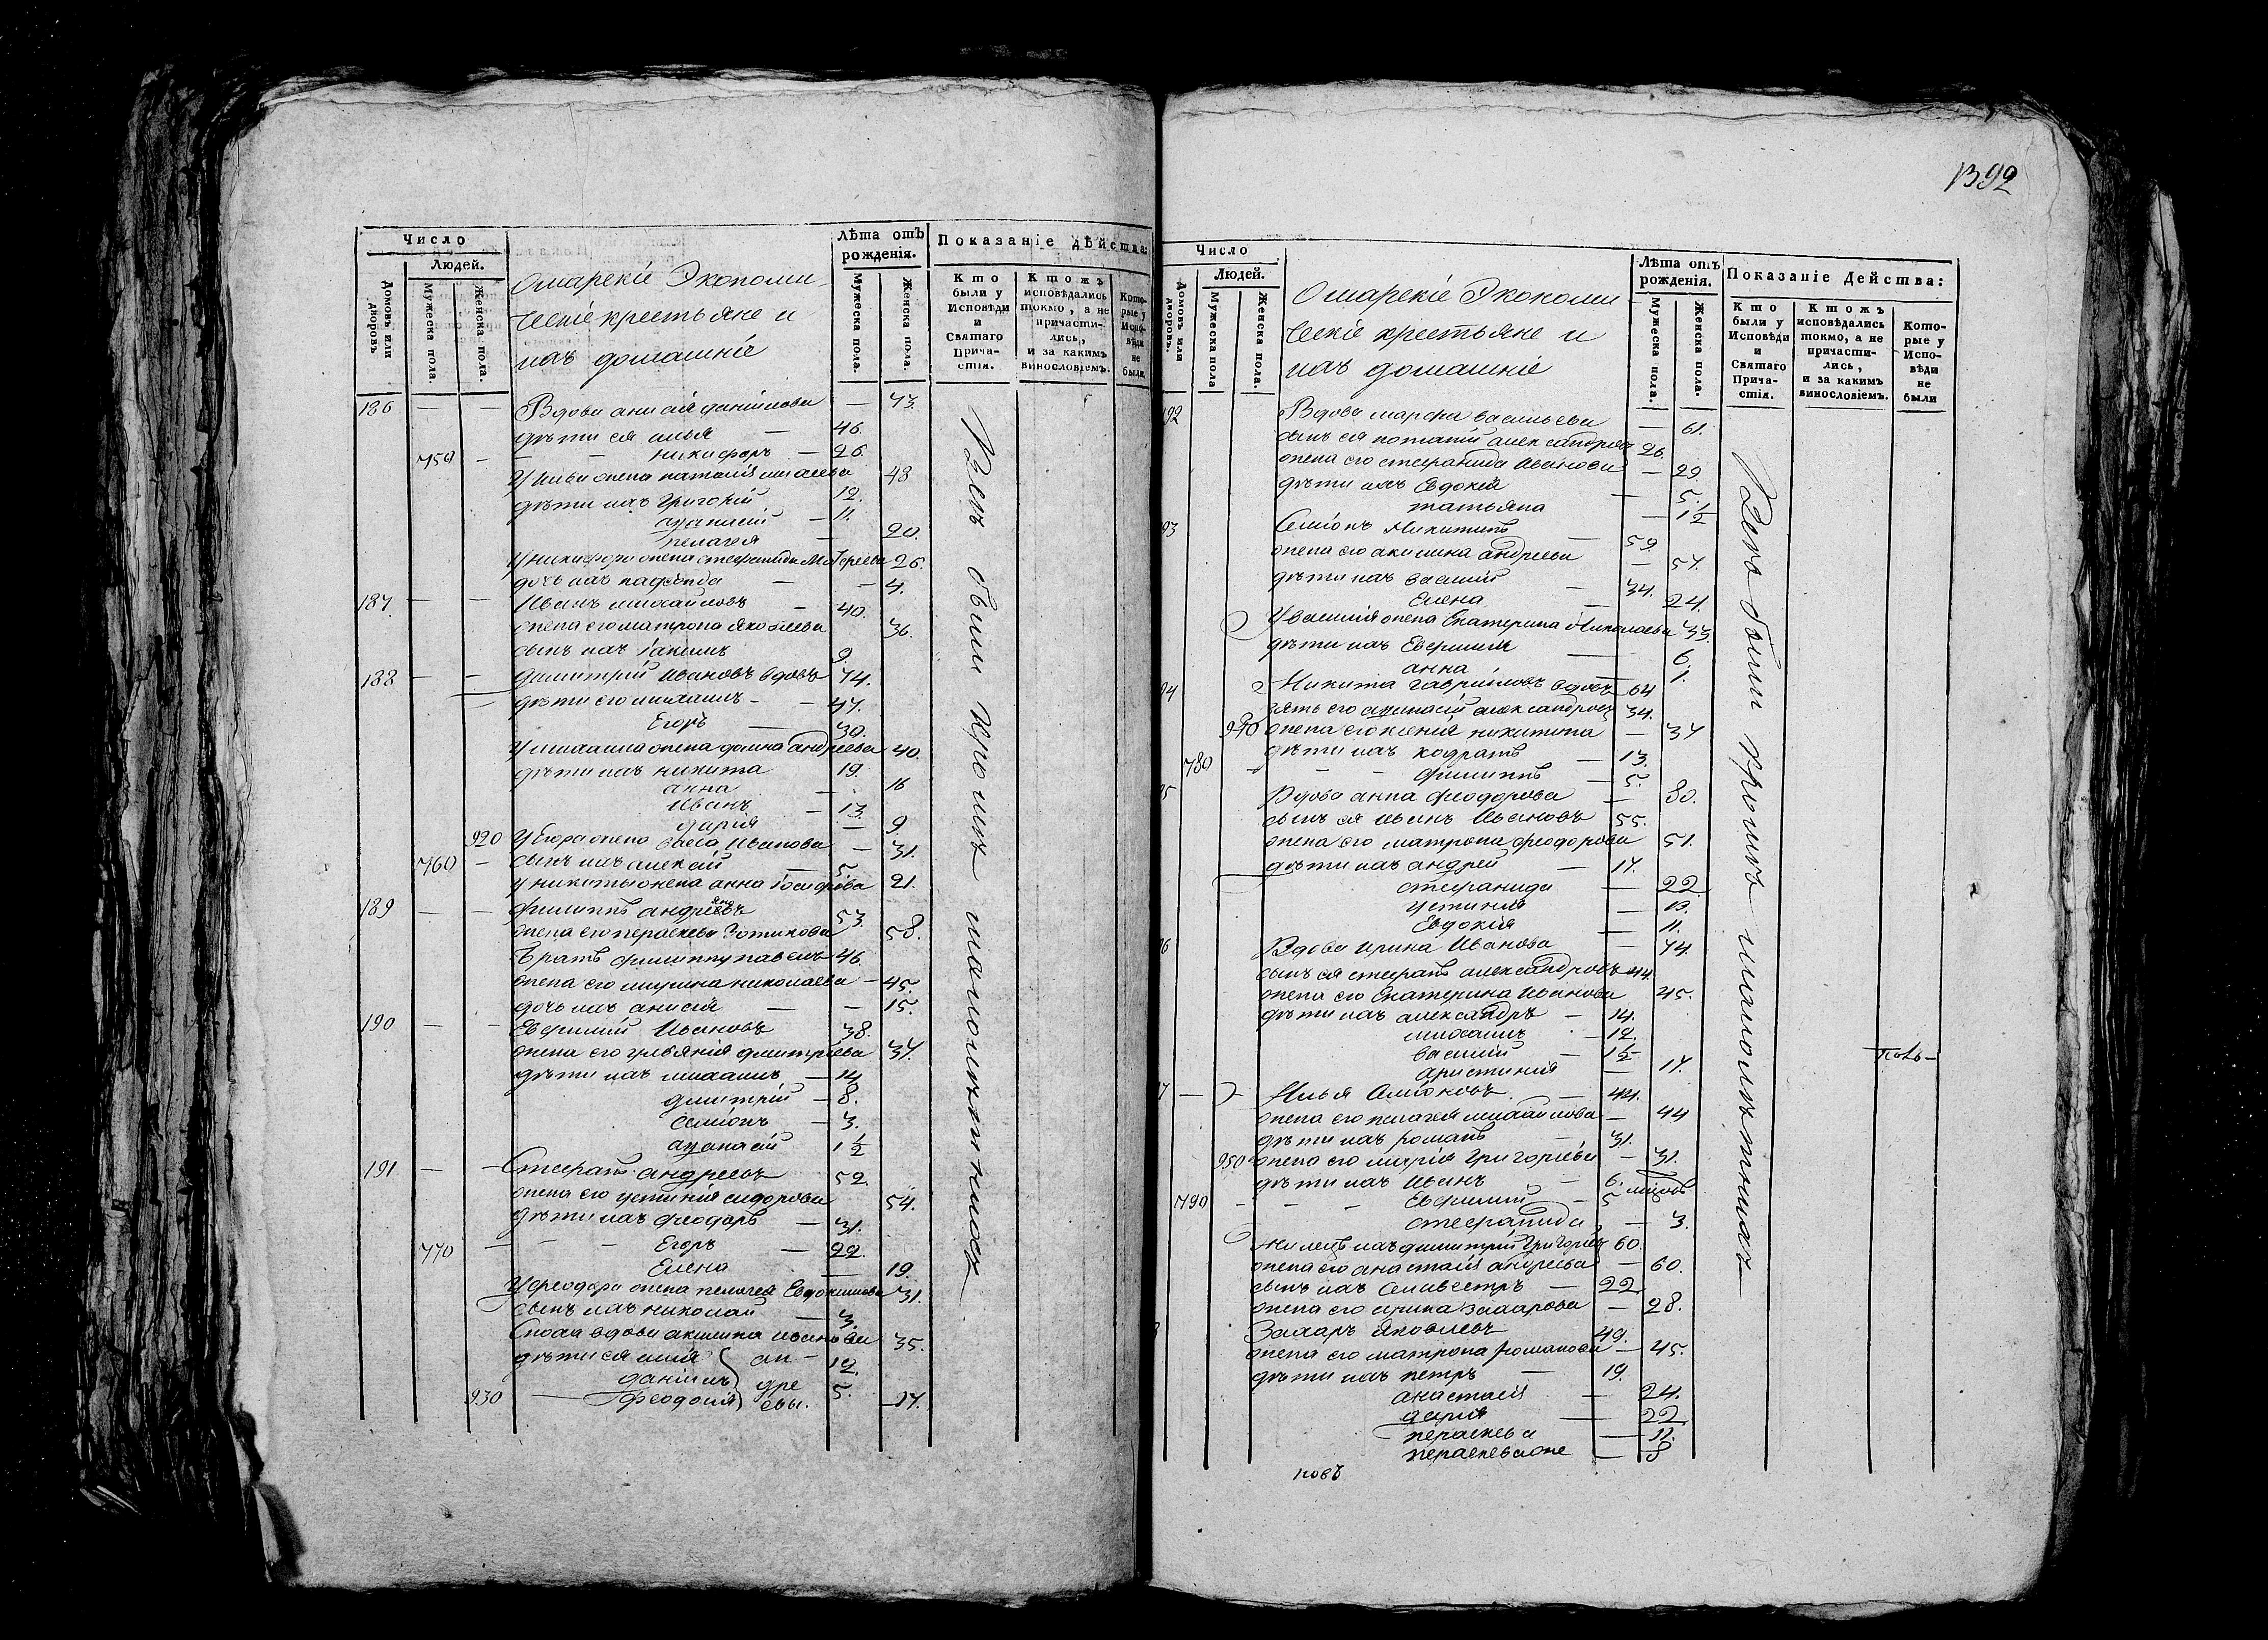 Число
Людей.
Домовъ или дворовъ
Мужеска пола.
Женска пола.
Омарскіе Экономи-
ческіе крестьяне и
ихъ домашніе
Лѣта отъ рожденія.
Мужеска пола.
Женска пола.
Показаніе дѣйства:
Кто были у Исповѣди и Святаго Прича-стія.
Ктожъ исповѣдались токмо, а не причасти-лись, и за какимъ винословіемъ.
Кото-рые у Испо-вѣди не были.
186 — — Вдова анисія данилова — 73.
дѣти ея илья — 46.
759 — никифоръ — 26.
У ильи жена наталія 48
дѣти ихъ Григорій 12.
афанасій — 11.
пелагея — 20.
У никифора жена стефанида 26.
дочь ихъ — 4.
187. — — Иванъ михайловъ — 40.
жена его матрона Яковлева 36.
сынъ ихъ Іакимъ 9.
188 — — Димитрій Ивановъ вдовъ 74.
дѣти его михаилъ — 47.
Егоръ — 30.
У михаила жена домна андреева 40.
дѣти ихъ никита 19.
анна — 16
Иванъ — 13.
дарія — 9.
920 У Егора жена Иванова — 31.
760 — сынъ ихъ алексій — 5.
у никиты жена анна 21.
189 — — Филиппъ андреевъ 53.
жена его параскева Зотикова 58.
Братъ филиппу павелъ 46.
жена его марина николаева — 45.
дочь ихъ анисія — — 15.
190 — — Евфимій Ивановъ 38.
жена его дмитріева 37.
дѣти ихъ михаилъ — 14
дмитрій — 8.
Семіонъ — 3.
афанасій 1 1/2
191 — — Стефанъ андреевъ 52.
жена его устинія сидорова 54.
дѣти ихъ феодоръ — 31.
770 — — — Егоръ — 22.
Елена — 19.
У феодора жена пелагея Евдокимова 31.
сынъ ихъ николай — 3.
Сноха вдова акилина иванова 35.
дѣти ея илія 12.
даніилъ 5.
930 — феодосія 17.
ан-
дре
евы.
Всѣ были кромѣ малолѣтнихъ
1392
Число
Людей.
Домовъ или дворовъ.
Мужеска пола
Женска пола.
Омарскіе Экономи
ческіе крестьяне и
ихъ домашніе
Лѣта отъ рожденія.
Мужеска пола.
Женска пола.
Показаніе Действа:
Кто были у Исповѣди и Святаго Прича-стія.
Ктожъ исповѣдались токмо, а не причасти-лись, и за какимъ винословіемъ.
Кото-рые у Испо-вѣди не были
92 Вдова марфа васильева — 61.
сынъ ея александровъ 26.
жена его стефанида Иванова — 29.
дѣти ихъ Евдокія — 5.
татьяна — 1 1/2
93 Семіонъ Никитинъ — 59.
жена его акилина андреева — 57.
дѣти ихъ василій — 34.
Елена — 24.
У василія жена Екатерина Николаева 33.
дѣти ихъ — 6.
анна — 1.
94 Никита гавриловъ вдовъ 64
зять его афанасій александровъ 34.
940 жена его ксенія никитина — 37
дѣти ихъ кодратъ — 13.
780 — — — филиппъ — 5.
95 Вдова анна феодорова — 80.
сынъ ея Иванъ Ивановъ 55.
жена его матрона феодорова 51.
дѣти ихъ андрей — 17.
стефанида — 22
устинія — 13.
Евдокія — 11.
96 Вдова ирина Иванова — 74.
сынъ ея стефанъ александровъ 44.
жена его Екатерина Иванова 45.
дѣти ихъ александръ — 14.
михаилъ — 12.
василій — 1 1/2
аристинія — 17.
7 — — Илья Семіоновъ — 44.
жена его пелагея михайлова — 44
дѣти ихъ романъ — 31.
950 жена его марія Григоріева — 31.
дѣти ихъ Иванъ — 6.
790 — — — Евфимій — 5
стефанида — 3.
димитрій Григорьевъ 60.
жена его анастасія андреева — 60.
сынъ ихъ Селивестръ — 22
жена его ирина захарова — 28.
Захаръ Яковлевъ 49.
жена его матрона романова — 45.
дѣти ихъ петръ — 19.
анастасія — 24.
дарія — 22
параскева — 11.
параскева же — 8
Всѣ были кромѣ малолѣтнихъ